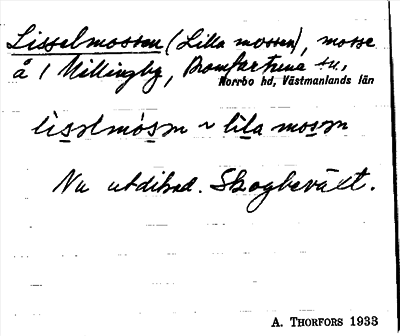 Lisselmossen (Lilla mossen), mosse
å 1 Millingby, Romfartuna sn,
Norrbo hd, Västmanlands län
lisəlmòsən ~ lila mosən
Nu utdikad. Skogbeväxt.
A. THORFORS 1933